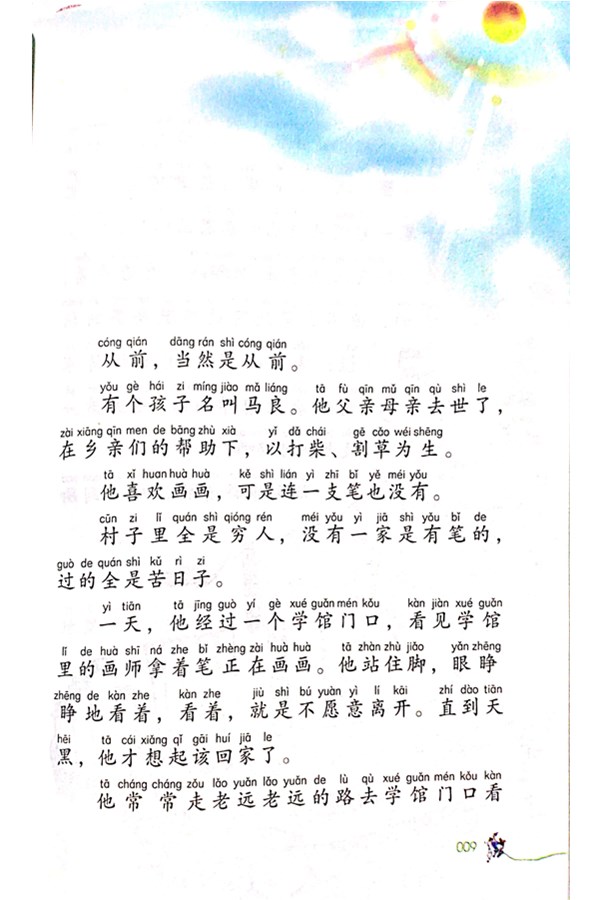 cóng qián dāng rán shì cóng qián
从前，当然是从前。
yǒu gè hái zi míng jiào mǎ liáng tā fù qīn mǔ qīn qù shì le
有个孩子名叫马良。他父亲母亲去世了，
zài xiāng qīn men de bāng zhù xià yǐ dǎ chái gē cǎo wéi shēng
在乡亲们的帮助下，以打柴、割草为生。
tā xǐ huan huà huà kě shì lián yì zhī bǐ yě méi yǒu
他喜欢画画，可是连一支笔也没有。
cūn zi lǐ quán shì qióng rén méi yǒu yì jiā shì yǒu bǐ de
村子里全是穷人，没有一家是有笔的，
guò de quán shì kǔ rì zi
过的全是苦日子。
yì tiān tā jīng guò yí gè xué guǎn mén kǒu kàn jiàn xué guǎn
一天，他经过一个学馆门口，看见学馆
lǐ de huà shī ná zhe bǐ zhèng zài huà huà tā zhàn zhù jiǎo yǎn zhēng
里的画师拿着笔正在画画。他站住脚，眼睁
zhēng de kàn zhe kàn zhe jiù shì bú yuàn yì lí kāi zhí dào tiān
睁地看着，看着，就是不愿意离开。直到天
hēi tā cái xiǎng qǐ gāi huí jiā le
黑，他才想起该回家了。
tā cháng cháng zǒu lǎo yuǎn lǎo yuǎn de lù qù xué guǎn mén kǒu kàn
他常常走老远老远的路去学馆门口看
009